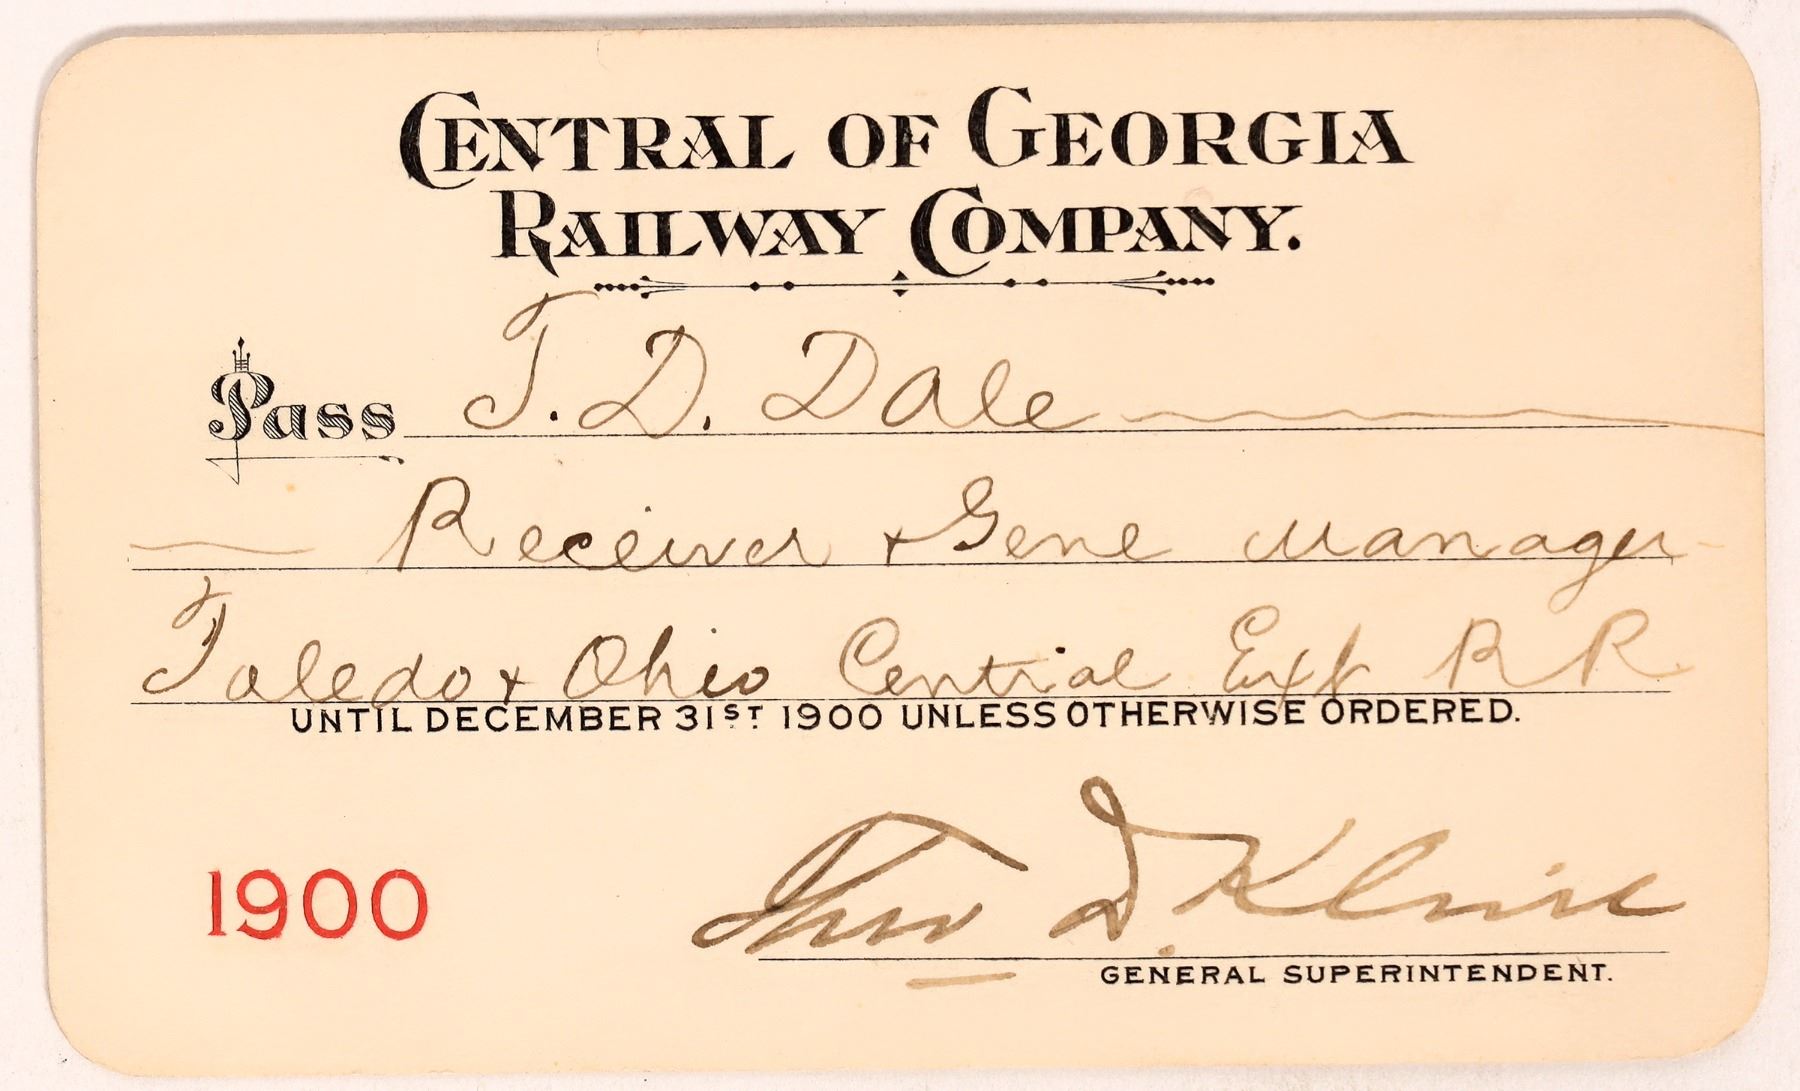 CENTRAL OF GEORGIA
RAILWAY COMPANY.
Pass T. D. Dale
Receiver & Genl Manager
Toledo & Ohio Central Ext R R
UNTIL DECEMBER 31ST 1900 UNLESS OTHERWISE ORDERED.
1900
Theo D. Kline
GENERAL SUPERINTENDENT.